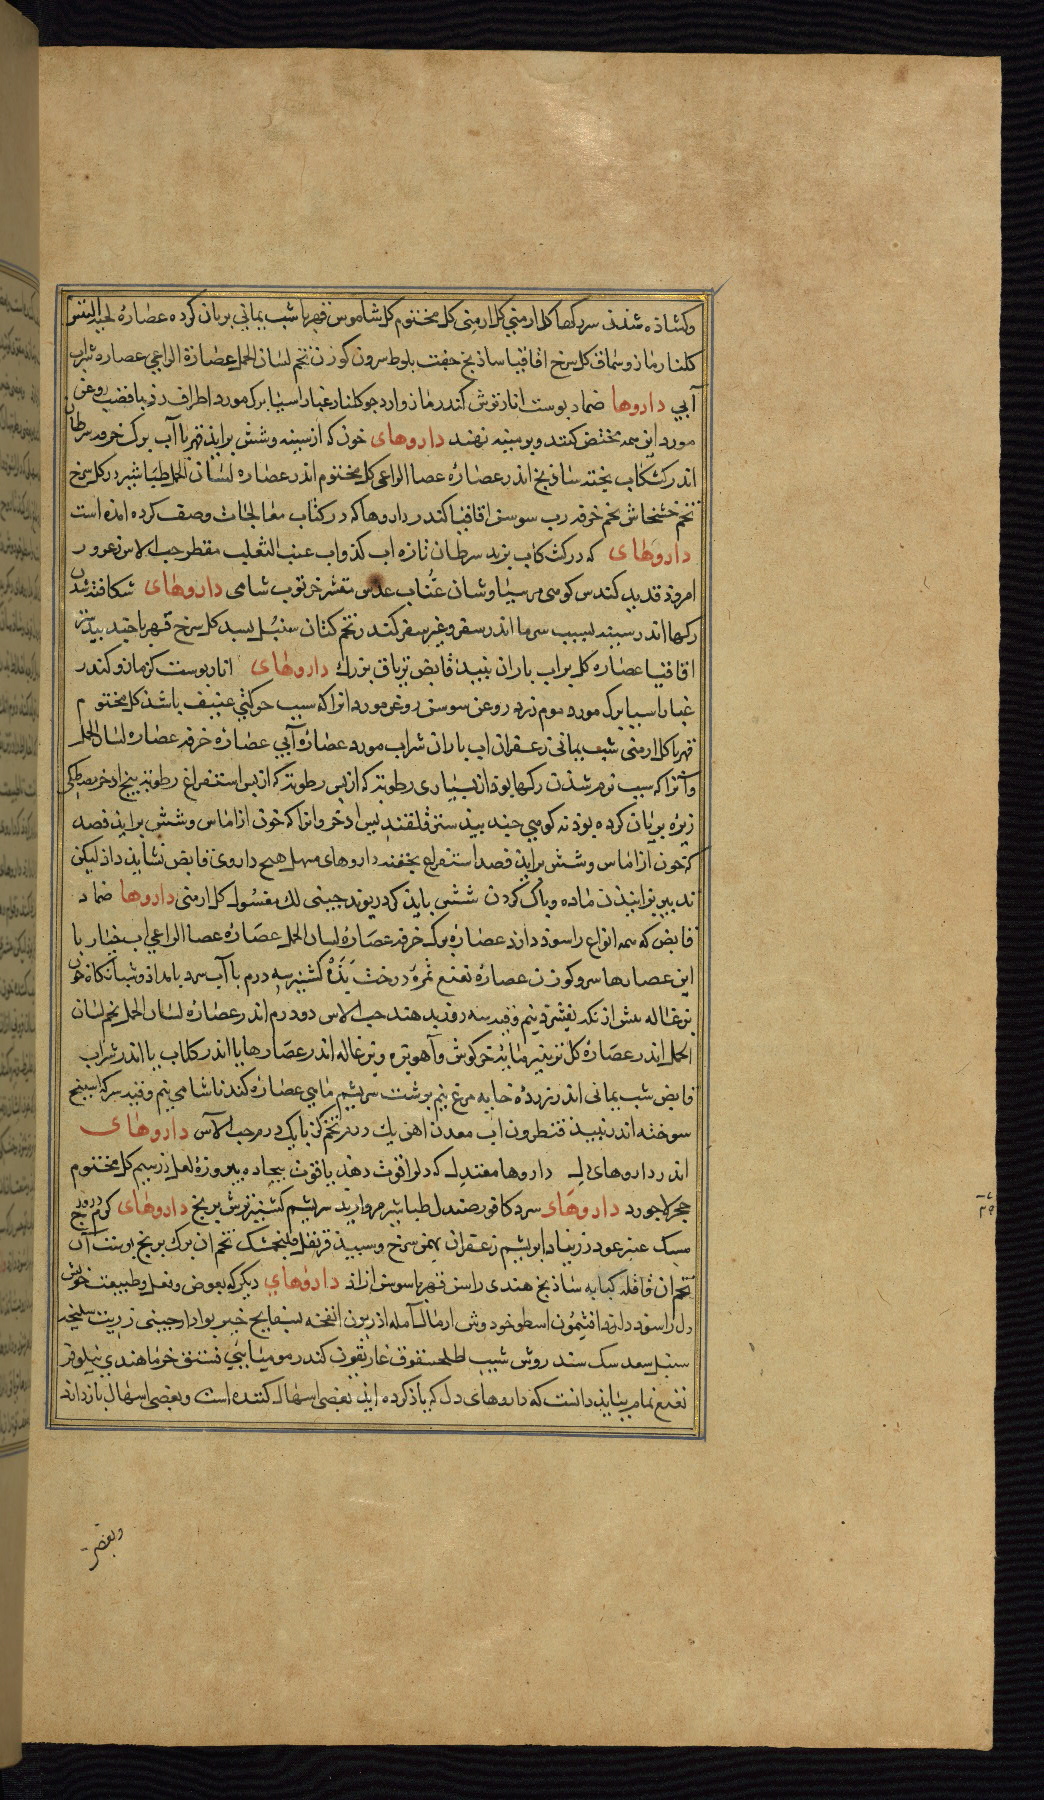 وکشاذه شدن سر رکها کل ارمنی کل ارمنی کل مختوم کل شاموس قهربا شب یمانی بریان کرده عصاره لحیة التیس
کلنار مازو سماق کل سرخ اقاقیا ساذنج جفت بلوط سرون کوزن تخم لسان الحمل عصارة الراعی عصاره شراب
آبی داروها ضماد بوست انار ترش کندر مازو ارد جو کلنار غبار اسیا برک مورد اطراف رز با قضیب روغن
مورد این همه بختض کنند و بر سینه نهند داروهای خون که از سینه و شش براید قهربا آب برک خرفه سرطان
اندر کشکاب بخته ساذنج اندر عصاره عصا الراعی کل مختوم اندر عصاره لسان الحمل طباشیر ورد کل سرخ
تخم خشخاش تخم خرفه رب سوسن اقاقیا کندر داروها که در کتاب معالجات وصف کرده امده است
داروهای که در کشکاب بزند سرطان تازه اب کذو اب عنب الثعلب مقطر حب الاس زعرور
امروذ قدید کندس کومی مرسیاوشان عناب عدس مقشر خرنوب شامی داروهای شکافته شدن
رکها اندر سینه بسبب سرما اندر سفر و غیر سفر کندر تخم کتان سنبل بسد کل سرخ قهربا جند بیدستر
اقاقیا عصاره کل براب باران نبیذ قابض تریاق بزرک داروهای انار بوست کزمازو کندر
غبار اسیا برک مورد موم زرد روغن سوسن روغن مورد انرا که سبب حرکتی عنیف باشد کل مختوم
قهربا کل ارمنی شب یمانی زعفران اب باران شراب مورد عصاره آبی عصاره خرفه عصاره لسان الحمل
وآنرا که سبب نرم شذن رکها بوذ از بسیاری رطوبتی که از بس رطوبتی که از بس استفراغ رطوبتی بیخ اذخر مصطکی
زیره بریان کرده بوذنه کومی جند بیذستر قلقند بیس اذخر وانرا که خون از اماس و شش براید فصد
که خون از اماس و شش براید فصد استفراغ بحقنه داروهای مسهل هیچ داروی قابض نشاید داد لیکن
تدبیر بزاینیدن ماده و باک کردن شش باید کرد ریوند جینی لک مغسول کل ارمنی داروها ضماد
قابض که همه انواع را سوذ دارد عصاره برک خرفه عصاره لسان الحمل عصاره عصا الراعی اب خیار با
این عصارها سرو کوزن عصاره نعنع ثمرة درخت بذه کشنیز سه درم با آب سرد بامداد و شبانکاه خون
بزغاله بیش از نکه بفشرد نیم وقیه سه روز بدهند حب الاس دو درم اندر عصاره لسان الحمل تخم لسان
الحمل اندر عصاره کل نرینیر مایه خرکوش وآهو بره و بزغاله اندر عصارها یا اندر کلاب یا اندر شراب
قابض شب یمانی اندر زرده خایه مرغ نیم برشت سریشم ماهی عصاره کندنا شامی نیم وقیه سرکه اسبنج
سوخته اندر نبیذ قنطریون اب معدن اهن یک درم تخم کزر با یک درم حب الآس داروهای
اندر داروهای دل داروها معتدل که دل را قوت دهذ یاقوت بیجاده بیروزه لعل زر سیم کل مختوم
حجر لاجورد داروهای سرد کافور صندل طباشیر مروارید سریشم کشنیز ترش برنج داروهای کرم درونج
مسک عنبر عود زرنباد ابریشم زعفران بهمن سرخ و سبید قرنفل فلنجمشک تخم ان برک برنج بوست آن
تخم ان قاقله کبابه ساذنج هندی راسن قهربا سوسن ازاد داروهای دیکر که بعوض و بفعل و طبیعت خویش
دل را سوذ دارد افتیمون اسطوخودوش ارمال آمله اذریون انفخه بسفایج خیربوا دارجینی زرنب سلیخه
سنبل سعد سک سند روش شیب اطلحسنفوف غاریقون کندر مومیایی فستق خرما هندی نیلوفر
نعنع نمام بباید دانست که داروهای دل که یاذ کرده اید بعضی اسهال کننده است و بعضی اسهال باز دارد
وبعضی